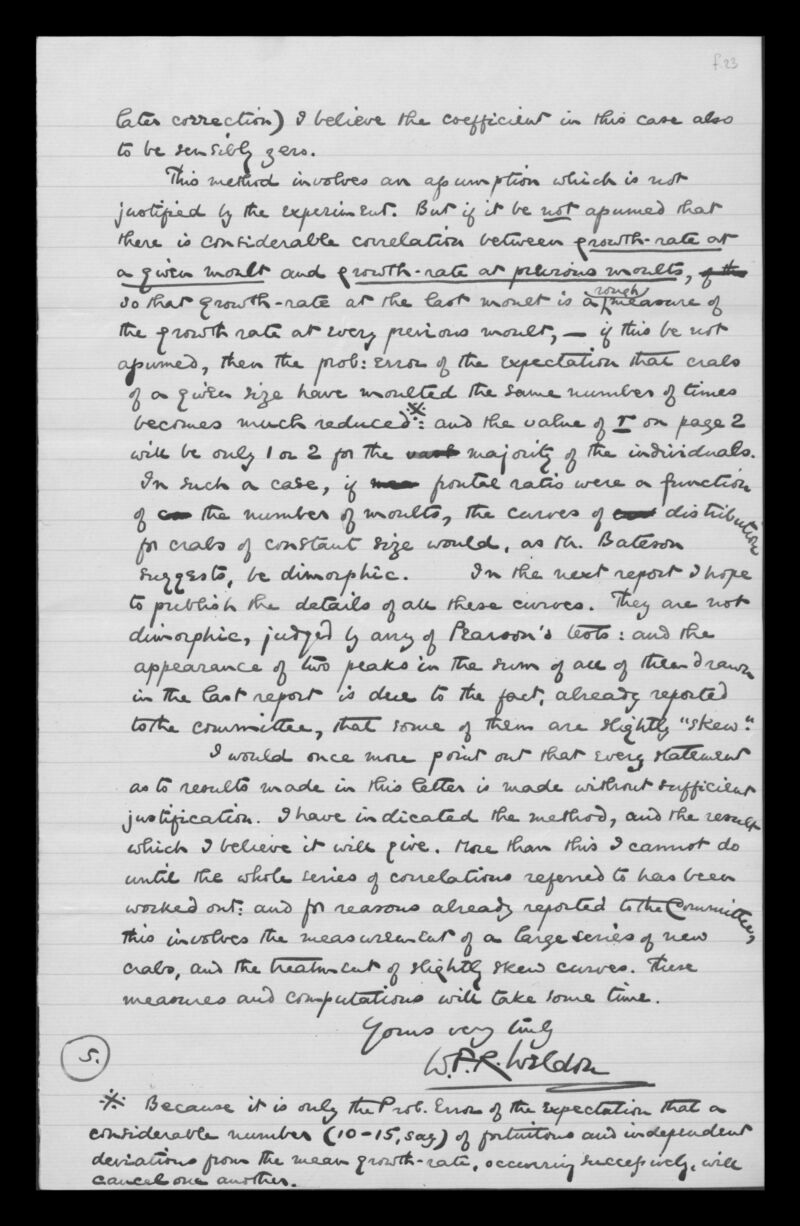 f.23
later correction) I believe the coefficient in this case also
to be sensibly zero.
This method involves an assumption which is not
justified by the experiment. But if it be not assumed that
there is considerable correlation between growth-rate at
a given moult and growth-rate at previous moults, if the
so that growth-rate at the last moult is a rough measure of
the growth rate at every previous moult, — if this be not
assumed, then the prob: error of the expectation that crabs
of a given size have moulted the same number of times
becomes much reduced※: and the value of r on page 2
will be only 1 or 2 for the vast majority of the individuals.
In such a case, if frontal ratio were a function
of the number of moults, the curves of distribution
for crabs of constant size would, as Mr. Bateson
suggests, be dimorphic. In the next report I hope
to publish the details of all these curves. They are not
dimorphic, judged by any of Pearson's tests: and the
appearance of two peaks in the sum of all of them drawn
in the last report is due to the fact, already reported
to the committee, that some of them are slightly "skew".
I would once more point out that every statement
as to results made in this letter is made without sufficient
justification. I have indicated the method, and the result
which I believe it will give. More than this I cannot do
until the whole series of correlations referred to has been
worked out: and for reasons already reported to the Committee,
this involves the measurement of a large series of new
crabs, and the treatment of slightly skew curves. These
measures and computations will take some time.
Yours very truly
W.F.R. Weldon
5.
※ Because it is only the Prob. Error of the expectation that a
considerable number (10-15, say) of fortuitous and independent
deviations from the mean growth-rate, occurring successively, will
cancel one another.